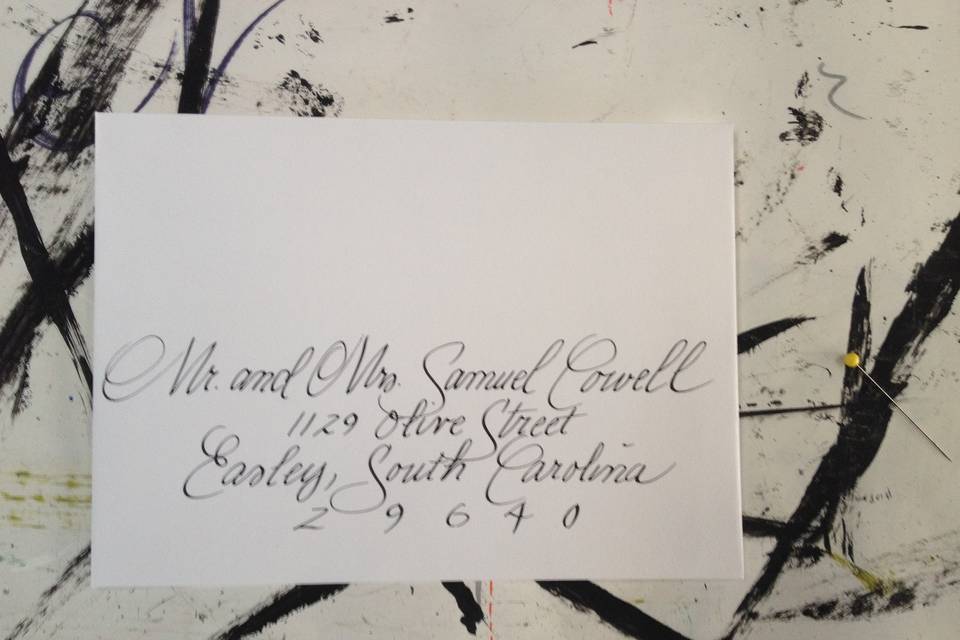 Mr. and Mrs. Samuel Cowell
1129 Olive Street
Easley, South Carolina
2 9 6 4 0